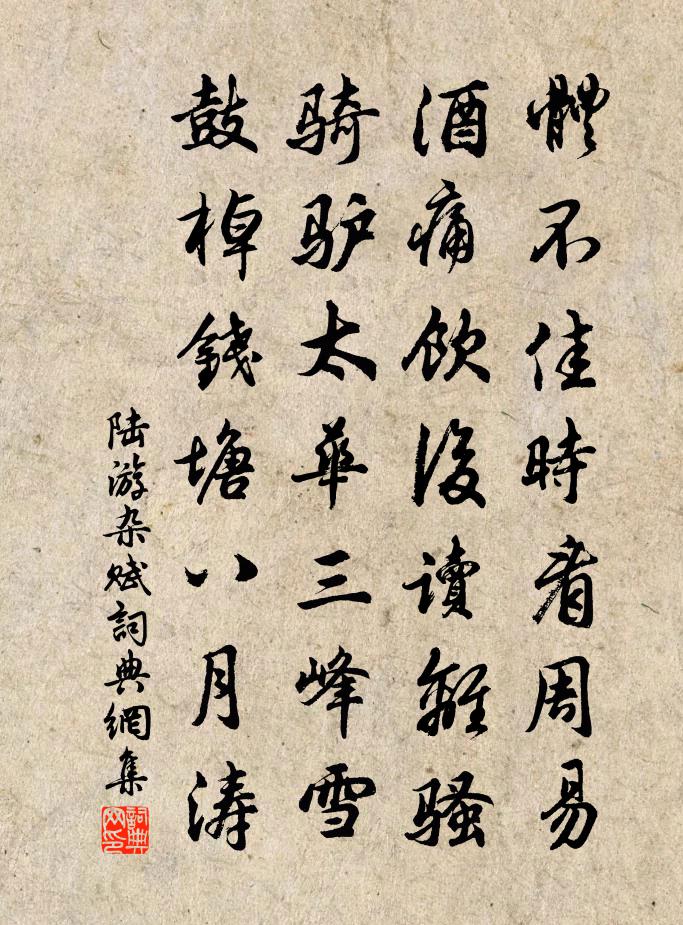 體不佳時看周易
酒痛飲後讀離騷
骑驴太華三峰雪
鼓棹錢塘八月涛
陆游杂赋詞典網集
詞典网印